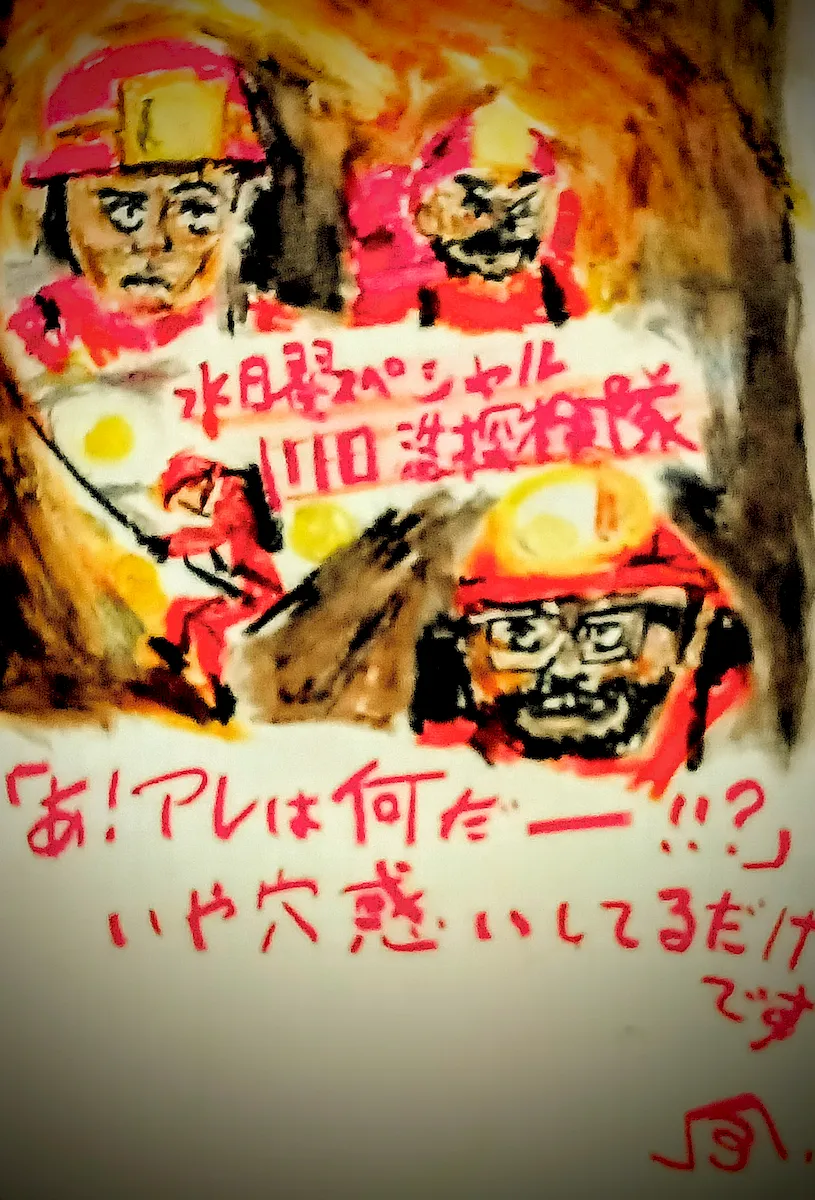 水曜スペシャル
川口浩探検隊
「あ!アレは何だー!!?」
いや穴惑いしてるだけ
です